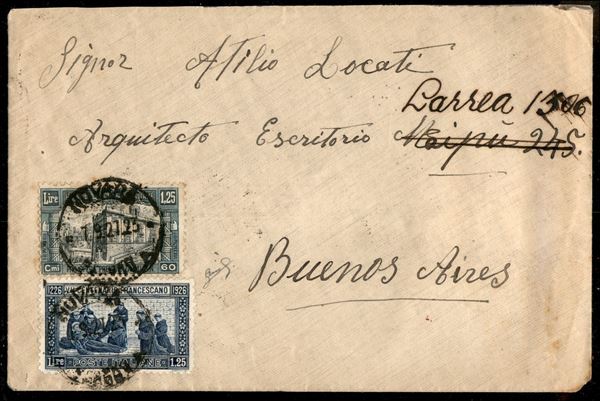 Signor Atilio Locati
Larrea 1306
Arquitecto Escritorio Maipú 245.
Buenos Aires
Lire 1,25
NOVARA
Cmi 60
NOVA
226 FRANCESCANO 1926
Lire POSTE ITALIANE 1,25